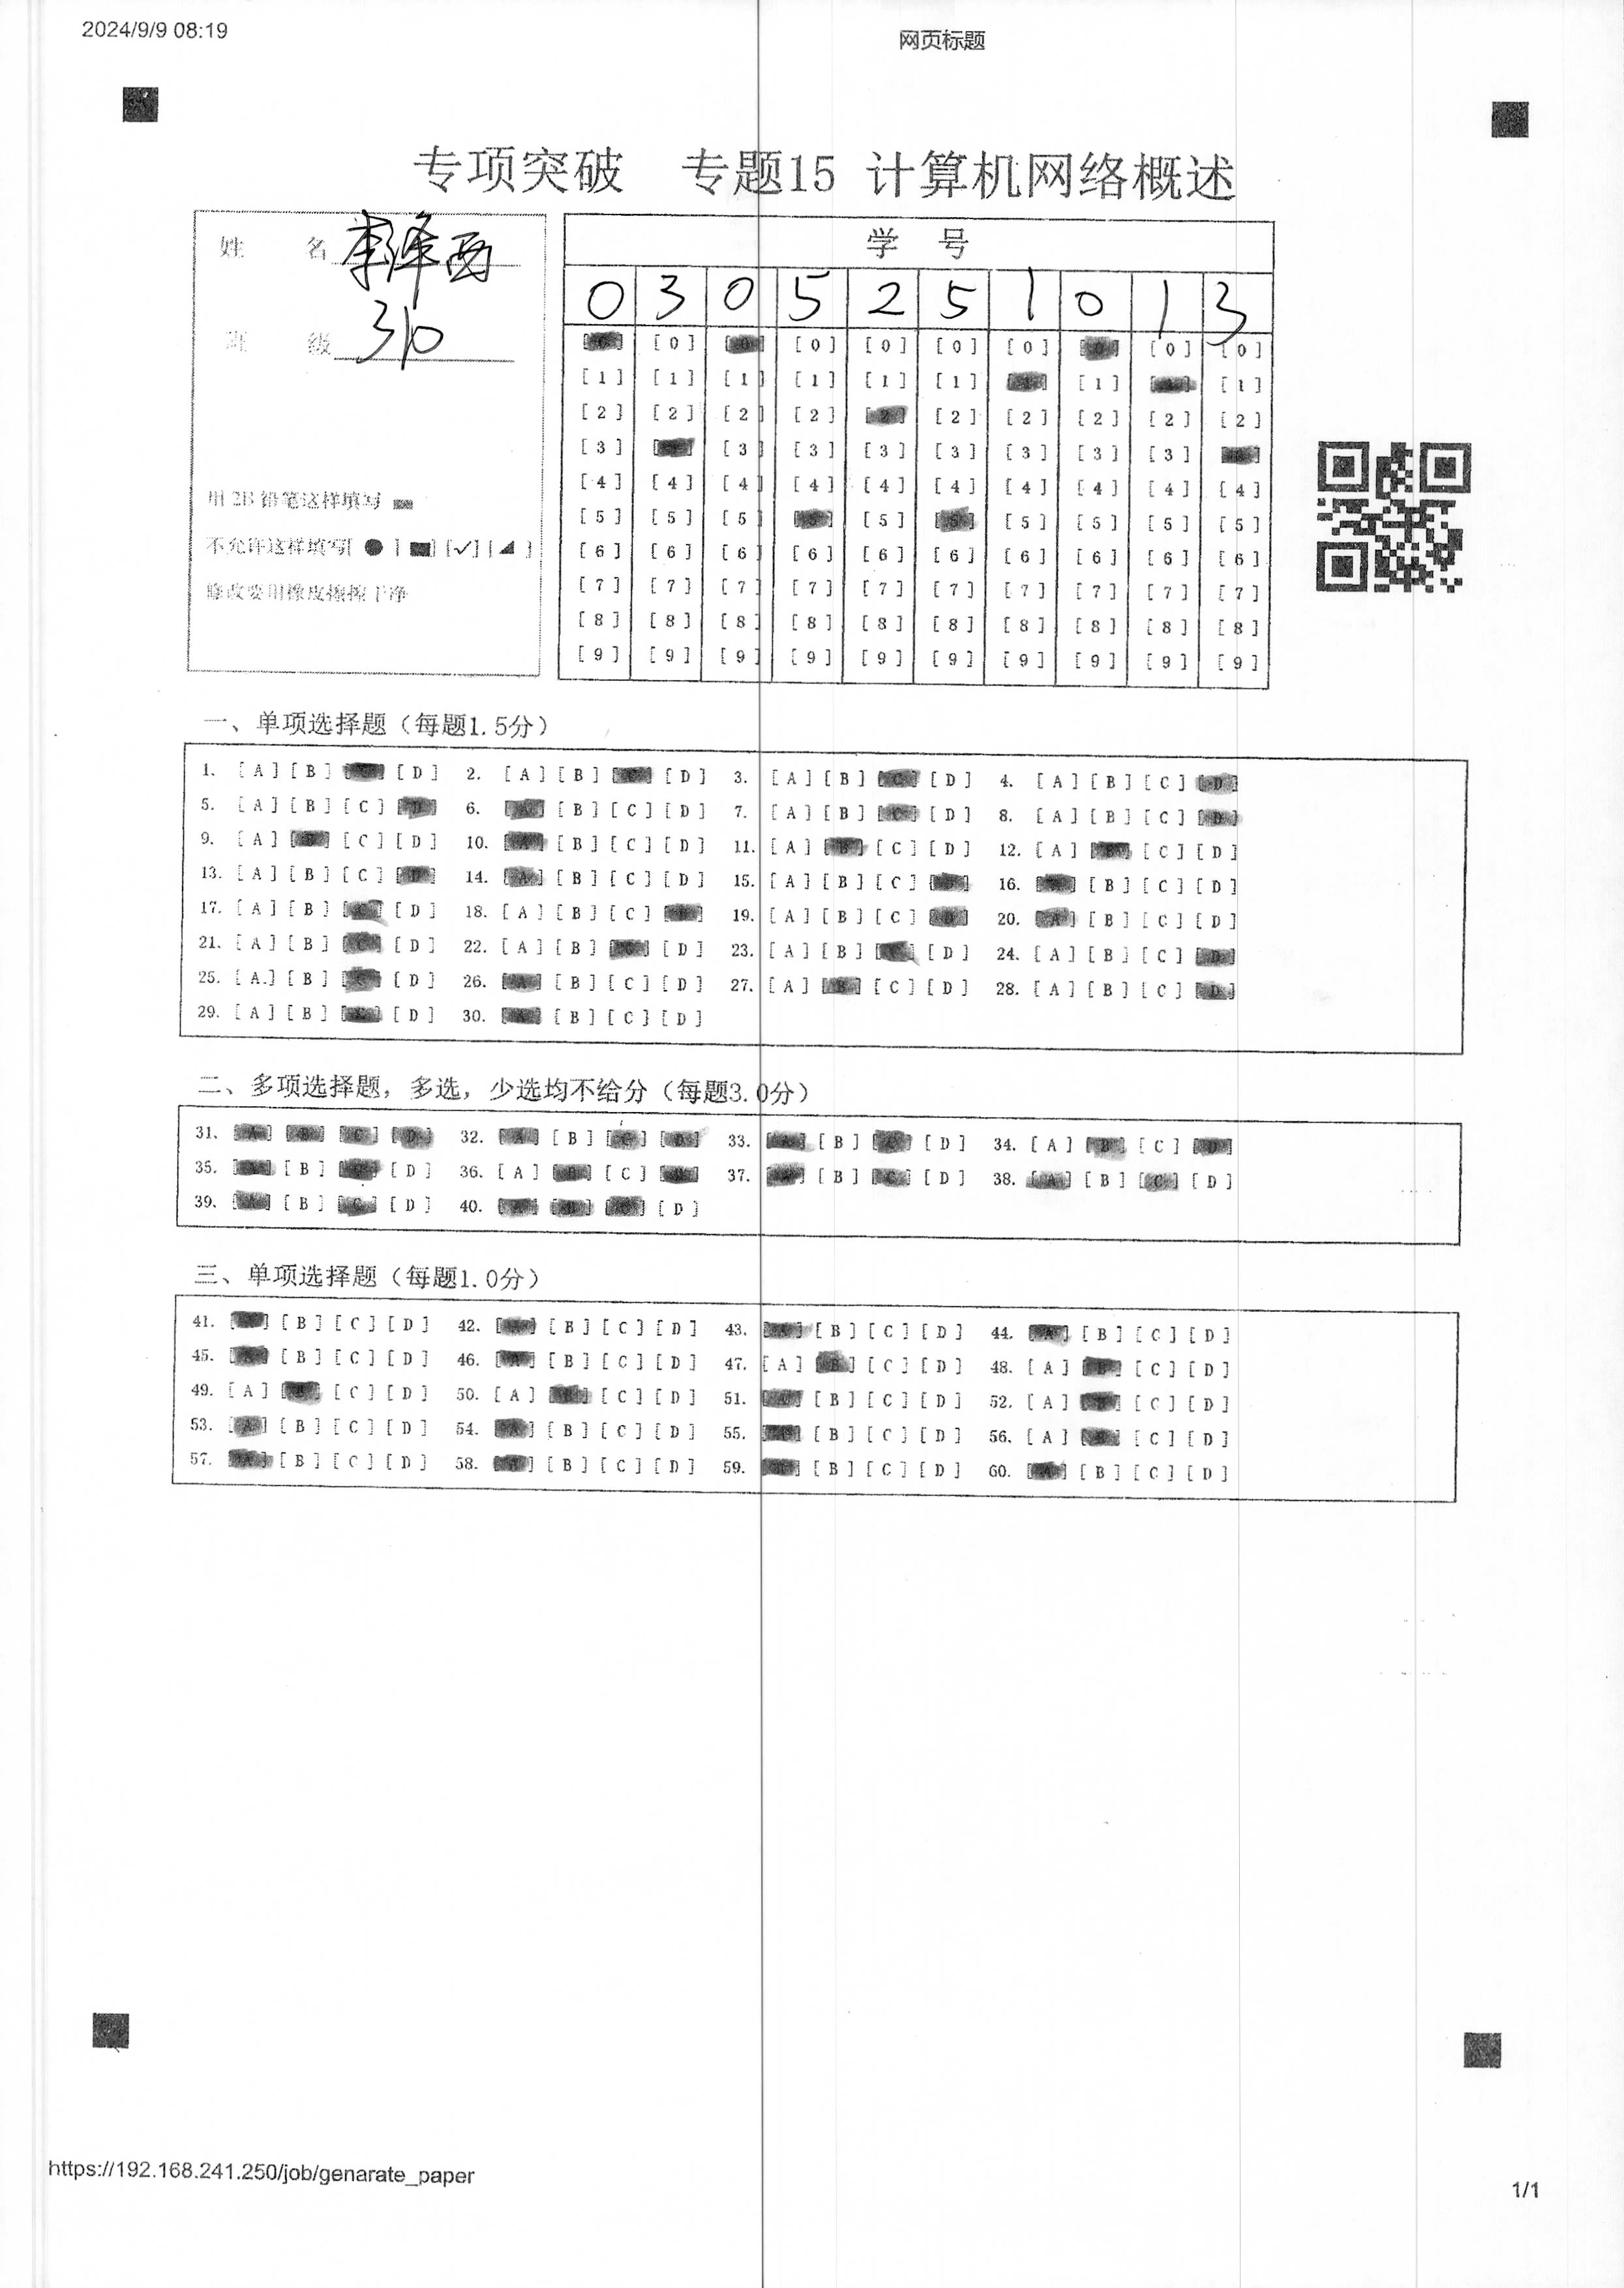 2024/9/9 08:19
网页标题
专项突破 专题15 计算机网络概述
姓 名 李泽西
班 级 310
用 2B 铅笔这样填写
不允许这样填写[ ● ] [ ■ ] [✓] [◢]
修改要用橡皮擦擦干净
学 号
0 3 0 5 2 5 1 0 1 3
[0] [0] [0] [0] [0] [0] [0] [0] [0] [0]
[1] [1] [1] [1] [1] [1] [1] [1] [1] [1]
[2] [2] [2] [2] [2] [2] [2] [2] [2] [2]
[3] [3] [3] [3] [3] [3] [3] [3] [3]
[4] [4] [4] [4] [4] [4] [4] [4] [4] [4]
[5] [5] [5] [5] [5] [5] [5] [5] [5] [5]
[6] [6] [6] [6] [6] [6] [6] [6] [6] [6]
[7] [7] [7] [7] [7] [7] [7] [7] [7] [7]
[8] [8] [8] [8] [8] [8] [8] [8] [8] [8]
[9] [9] [9] [9] [9] [9] [9] [9] [9] [9]
一、单项选择题（每题1.5分）
1. [A] [B] [D] 2. [A] [B] [C] [D] 3. [A] [B] [C] [D] 4. [A] [B] [C] [D]
5. [A] [B] [C] [D] 6. [A] [B] [C] [D] 7. [A] [B] [C] [D] 8. [A] [B] [C] [D]
9. [A] [B] [C] [D] 10. [A] [B] [C] [D] 11. [A] [B] [C] [D] 12. [A] [B] [C] [D]
13. [A] [B] [C] [D] 14. [A] [B] [C] [D] 15. [A] [B] [C] [D] 16. [A] [B] [C] [D]
17. [A] [B] [C] [D] 18. [A] [B] [C] [D] 19. [A] [B] [C] [D] 20. [A] [B] [C] [D]
21. [A] [B] [C] [D] 22. [A] [B] [C] [D] 23. [A] [B] [C] [D] 24. [A] [B] [C] [D]
25. [A] [B] [C] [D] 26. [A] [B] [C] [D] 27. [A] [B] [C] [D] 28. [A] [B] [C] [D]
29. [A] [B] [C] [D] 30. [A] [B] [C] [D]
二、多项选择题，多选，少选均不给分（每题3.0分）
31. [A] [B] [C] [D] 32. [A] [B] [C] [D] 33. [A] [B] [C] [D] 34. [A] [B] [C] [D]
35. [A] [B] [C] [D] 36. [A] [B] [C] [D] 37. [A] [B] [C] [D] 38. [A] [B] [C] [D]
39. [A] [B] [C] [D] 40. [A] [B] [C] [D]
三、单项选择题（每题1.0分）
41. [A] [B] [C] [D] 42. [A] [B] [C] [D] 43. [A] [B] [C] [D] 44. [A] [B] [C] [D]
45. [A] [B] [C] [D] 46. [A] [B] [C] [D] 47. [A] [B] [C] [D] 48. [A] [B] [C] [D]
49. [A] [B] [C] [D] 50. [A] [B] [C] [D] 51. [A] [B] [C] [D] 52. [A] [B] [C] [D]
53. [A] [B] [C] [D] 54. [A] [B] [C] [D] 55. [A] [B] [C] [D] 56. [A] [B] [C] [D]
57. [A] [B] [C] [D] 58. [A] [B] [C] [D] 59. [A] [B] [C] [D] 60. [A] [B] [C] [D]
https://192.168.241.250/job/genarate_paper
1/1